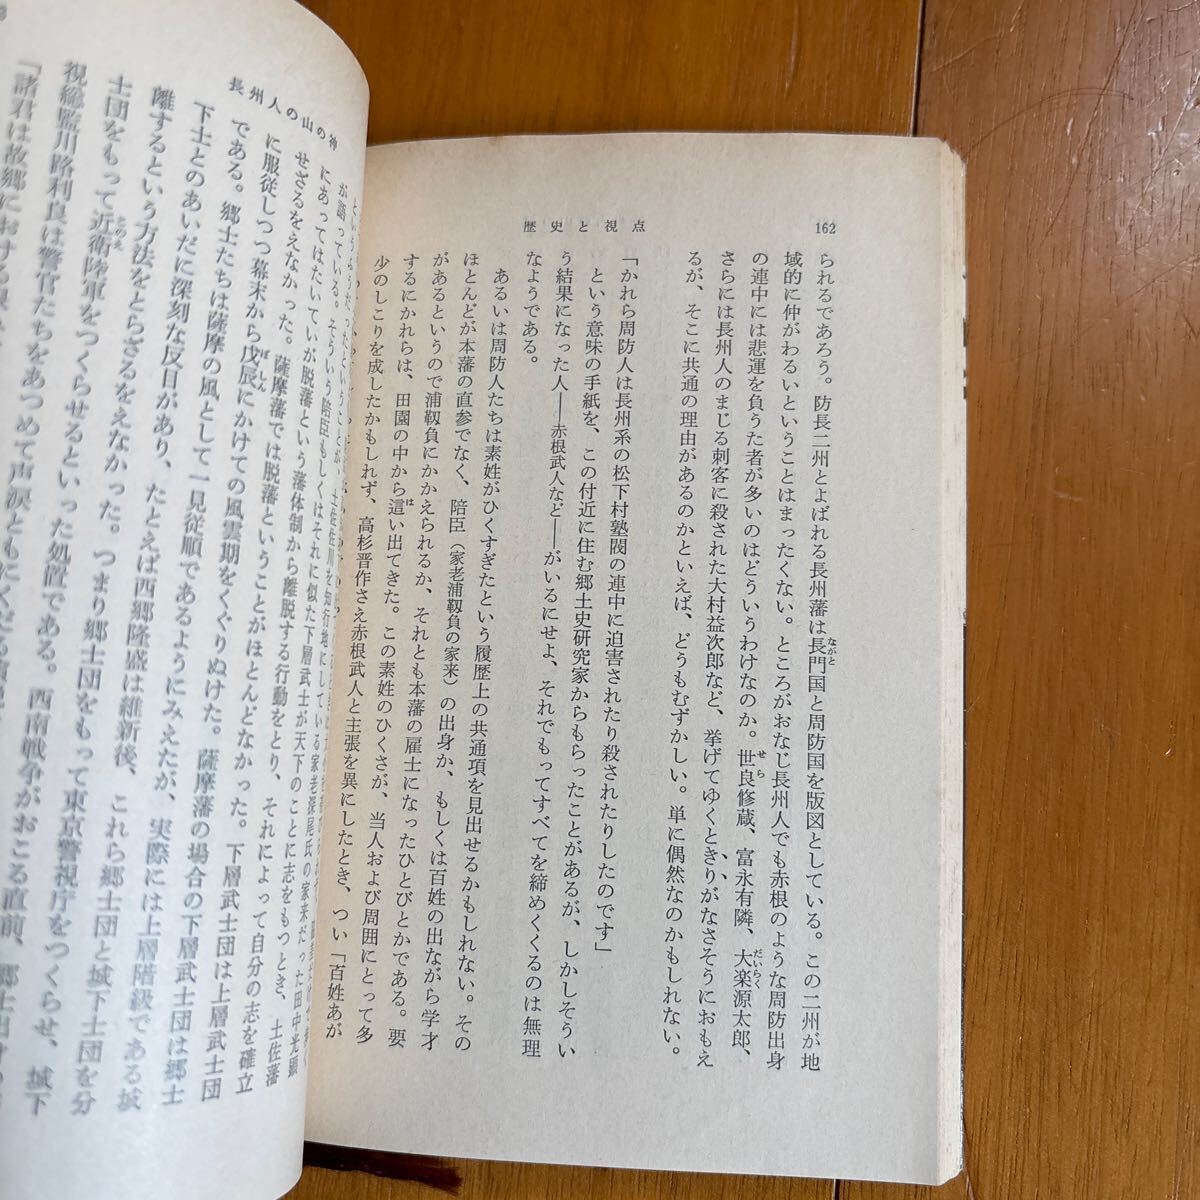 162
歴史と視点
られるであろう。防長二州とよばれる長州藩は長門国と周防国を版図としている。この二州が地
域的に仲がわるいということはまったくない。ところがおなじ長州人でも赤根のような周防出身
の連中には悲運を負うた者が多いのはどういうわけなのか。世良修蔵、富永有隣、大楽源太郎、
さらには長州人のまじる刺客に殺された大村益次郎など、挙げてゆくときりがなさそうにおもえ
るが、そこに共通の理由があるのかといえば、どうもむずかしい。単に偶然なのかもしれない。
「かれら周防人は長州系の松下村塾閥の連中に迫害されたり殺されたりしたのです」
という意味の手紙を、この付近に住む郷土史研究家からもらったことがあるが、しかしそうい
う結果になった人――赤根武人など――がいるにせよ、それでもってすべてを締めくくるのは無理
なようである。
あるいは周防人たちは素姓がひくすぎたという履歴上の共通項を見出せるかもしれない。その
ほとんどが本藩の直参でなく、陪臣（家老浦靱負の家来）の出身か、もしくは百姓の出ながら学才
があるというので浦靱負にかかえられるか、それとも本藩の雇士になったひとびとかである。要
するにかれらは、田園の中から這い出てきた。この素姓のひくさが、当人および周囲にとって多
少のしこりを成したかもしれず、高杉晋作さえ赤根武人と主張を異にしたとき、つい「百姓あが
長州人の山の神
が語っている。そういう陪臣もしくはそれに似た下層武士が天下のことに志をもつとき、土佐藩
にあってはたいていが脱藩という藩体制から離脱する行動をとり、それによって自分の志を確立
せざるをえなかった。薩摩藩では脱藩ということがほとんどなかった。下層武士団は上層武士団
に服従しつつ幕末から戊辰にかけての風雲期をくぐりぬけた。薩摩藩の場合の下層武士団は郷士
である。郷士たちは薩摩の風として一見従順であるようにみえたが、実際には上層階級である城
下士とのあいだに深刻な反目があり、たとえば西郷隆盛は維新後、これら郷士団と城下士団を分
離するという方法をとらざるをえなかった。つまり郷士団をもって東京警視庁をつくらせ、城下
士団をもって近衛陸軍をつくらせるといった処置である。西南戦争がおこる直前、
視総監川路利良は警官たちをあつめて声涙ともに
「諸君は故郷における